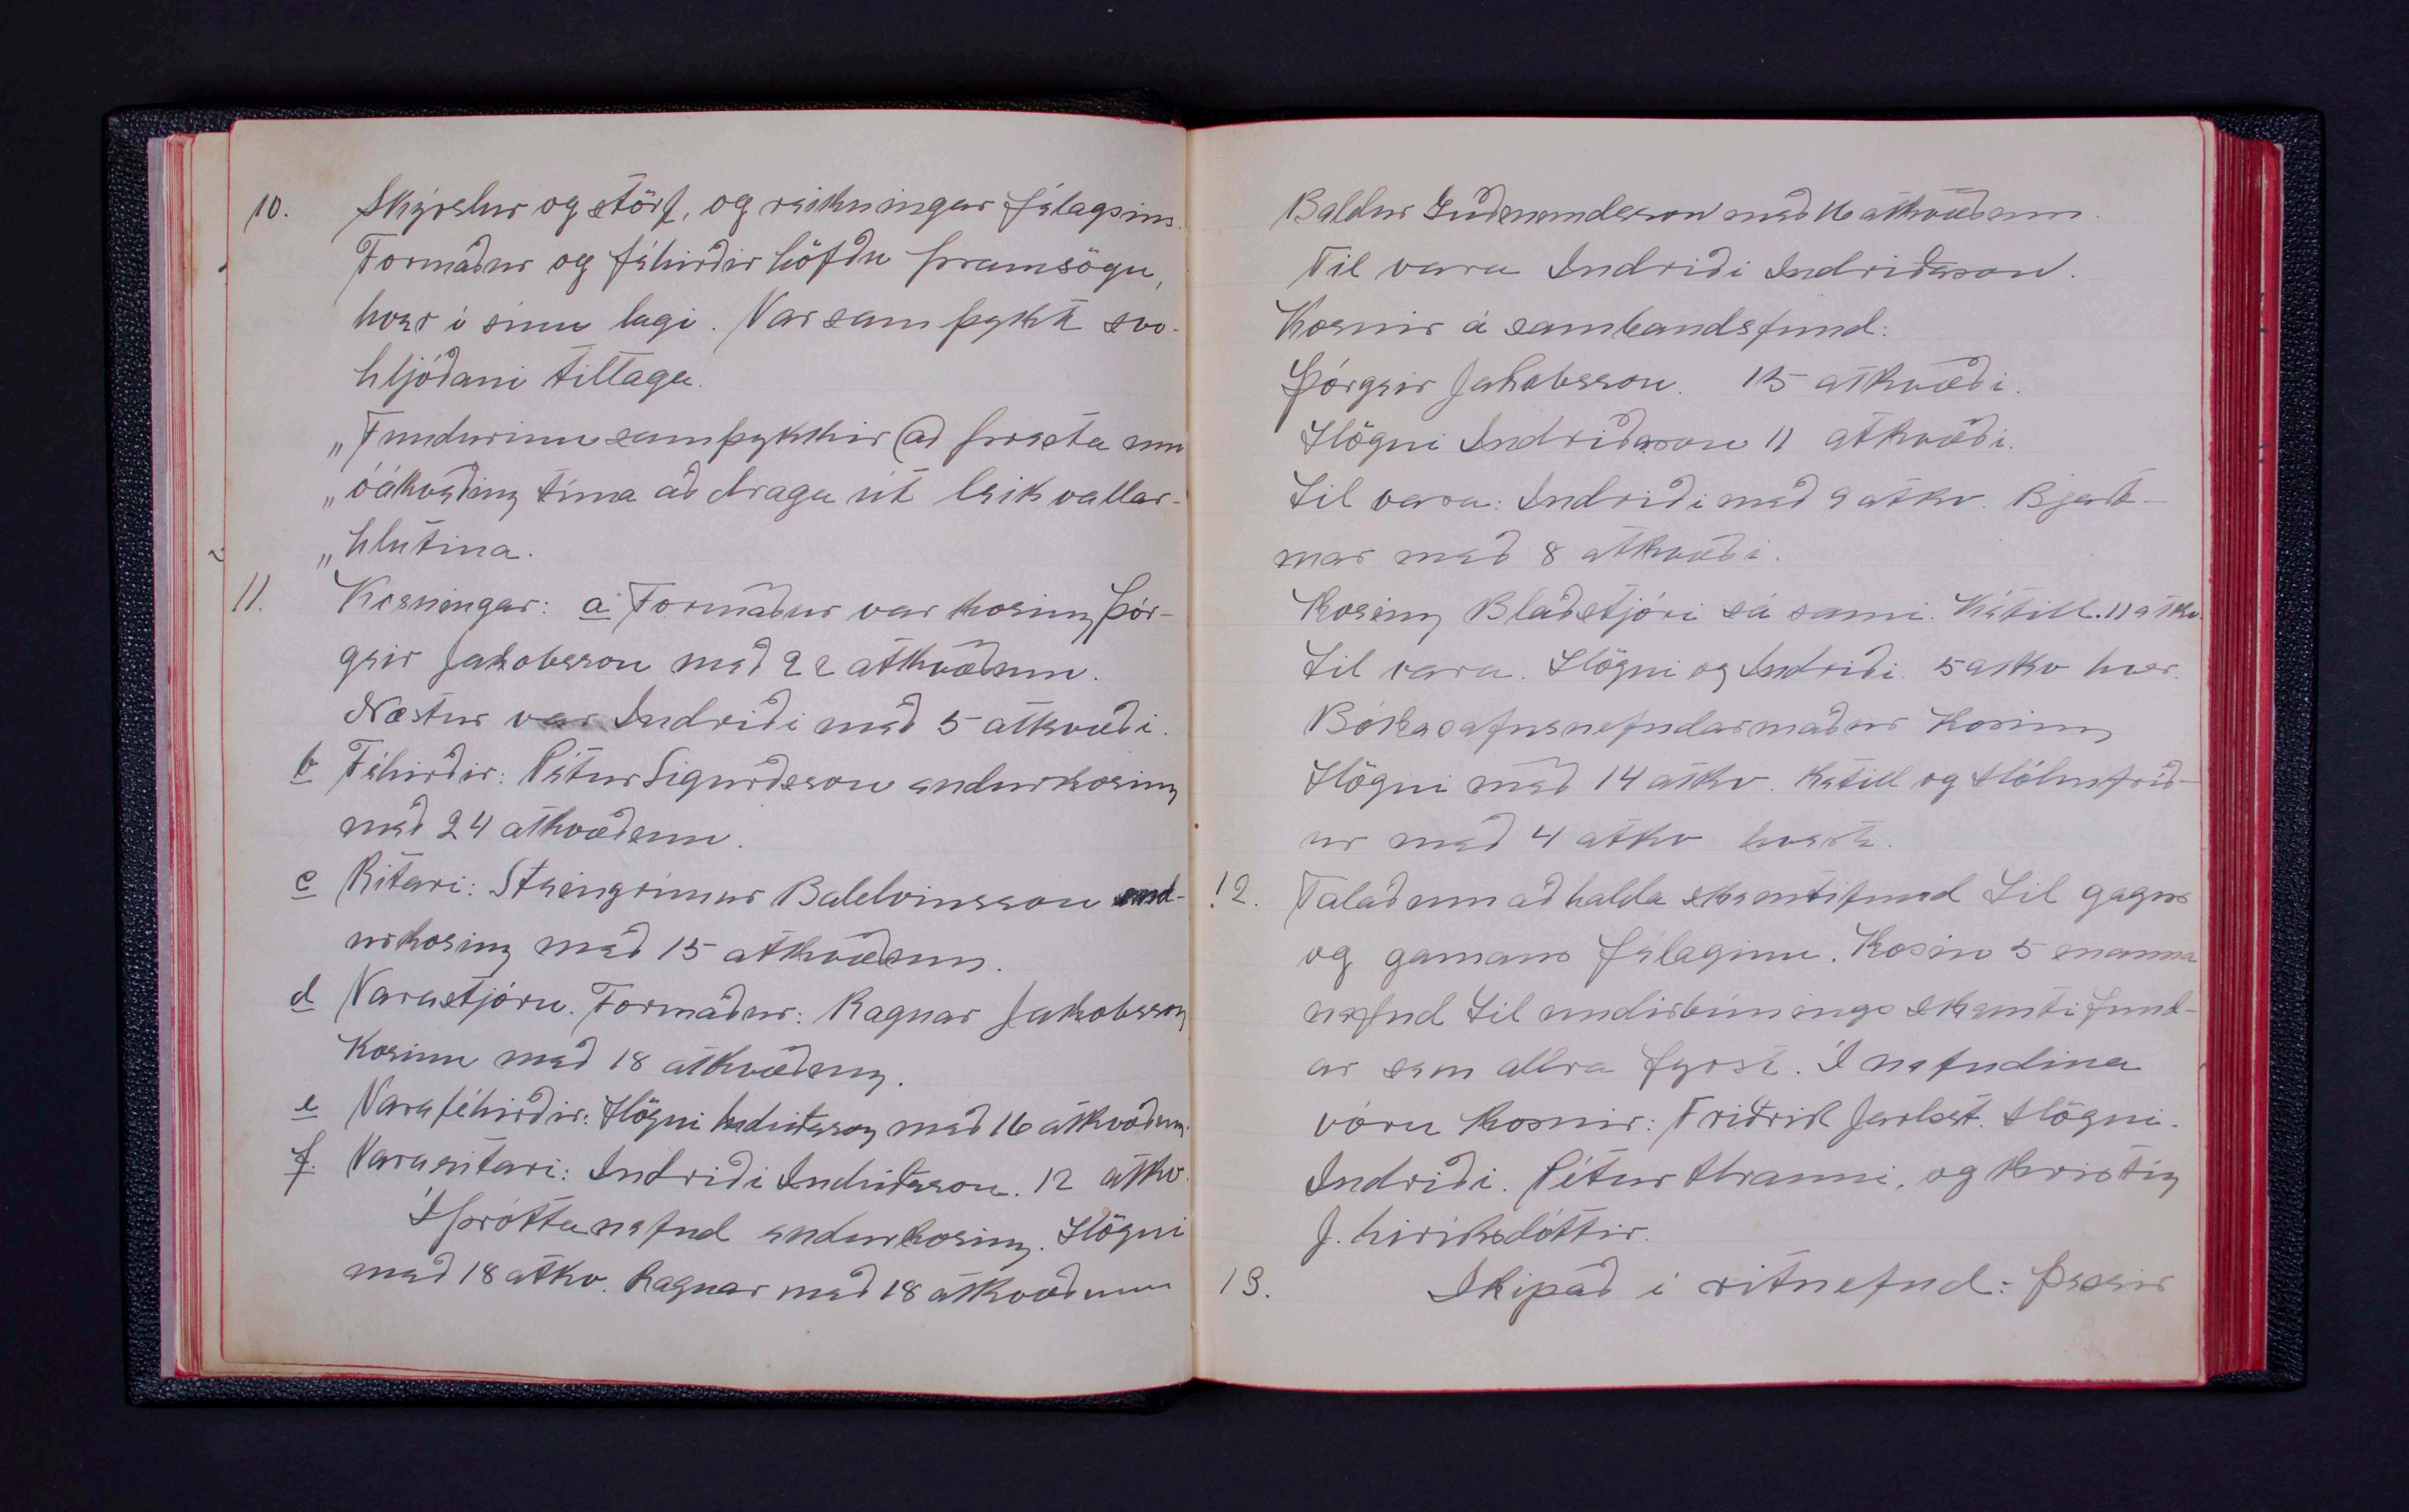 10. Skýrslur og störf, og reikningar félagsins.
Formaður og féhirðir höfðu framsögu,
hver í sínu lagi. Var samþykkt svo-
hljóðani tillaga.
„Fundurinn samþykkir að fresta um
„óákveðinn tíma að draga út leikvallar-
„hlutina.
11. Kosningar: a Formaður var kosinn Þór-
geir Jakobsson með 22 atkvæðum.
Næstur var Indriði með 5 atkvæði.
b Féhirðir: Pétur Sigurðsson endurkosinn
með 24 atkvæðum.
c Ritari: Steingrímur Baldvinsson end-
urkosinn með 15 atkvæðum.
d Varastjórn. Formaður: Ragnar Jakobsson
Kosinn með 18 atkvæðum.
e Varaféhirðir: Högni Indriðason með 16 atkvæðum.
f. Vararitari: Indriði Indriðason. 12 atkv.
Íþróttanefnd endurkosinn. Högni
með 18 atkv. Ragnar með 18 atkvæðum
Baldur Guðmundsson með 16 atkvæðum.
Til vara Indriði Indriðason.
Kosnir á sambandsfund:
Þórgeir Jakobsson. 15 atkvæði.
Högni Indriðason 11 atkvæði.
Til vara: Indriði með 9 atkv. Bjart-
mar með 8 atkvæði.
Kosinn Blaðstjóri sá sami. Ketill. 11 atkv.
Til vara. Högni og Indriði. 5 atkv hver.
Bókasafnsnefndarmaður Kosinn
Högni með 14 atkv. Ketill og Hólmfríð-
ur með 4 atkv hvert.
12. Talað um að halda skemtifund til gagns
og gamans félaginu. Kosin 5 manna
nefnd til undirbúnings skemtifund-
ar sem allra fyrst. Í nefndina
vóru kosnir: Friðrik Högni.
Indriði. Pétur Hranni, og Kristín
J. Eiríksdóttir.
13. Skipað í ritnefnd: Þessir